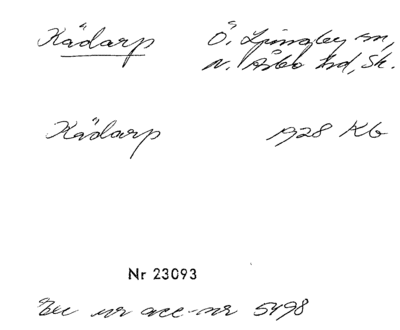 Kädarp Ö. Ljungby sn,
N. Åsbo hd, Sk.
Kädarp 1928 Kb
Nr 23093
Ex ur acc-nr 5498